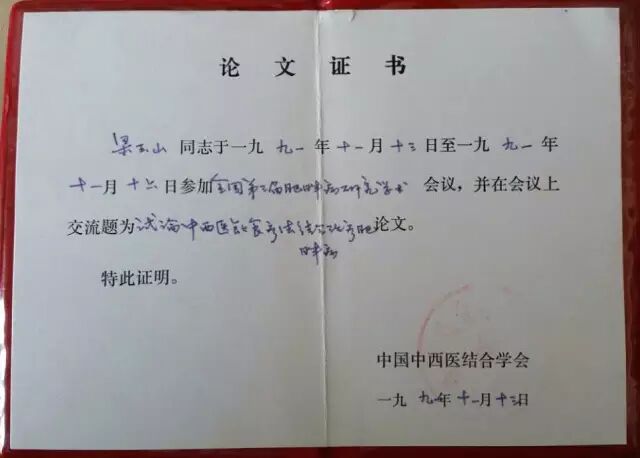 论文证书
梁玉山 同志于一九九一年十一月十三日至一九九一年
十一月十六日参加全国第三届肥胖病研究学术会议，并在会议上
交流题为试论中西医饮食疗法结合治疗肥胖病论文。
特此证明。
中国中西医结合学会
一九九一年十一月十三日